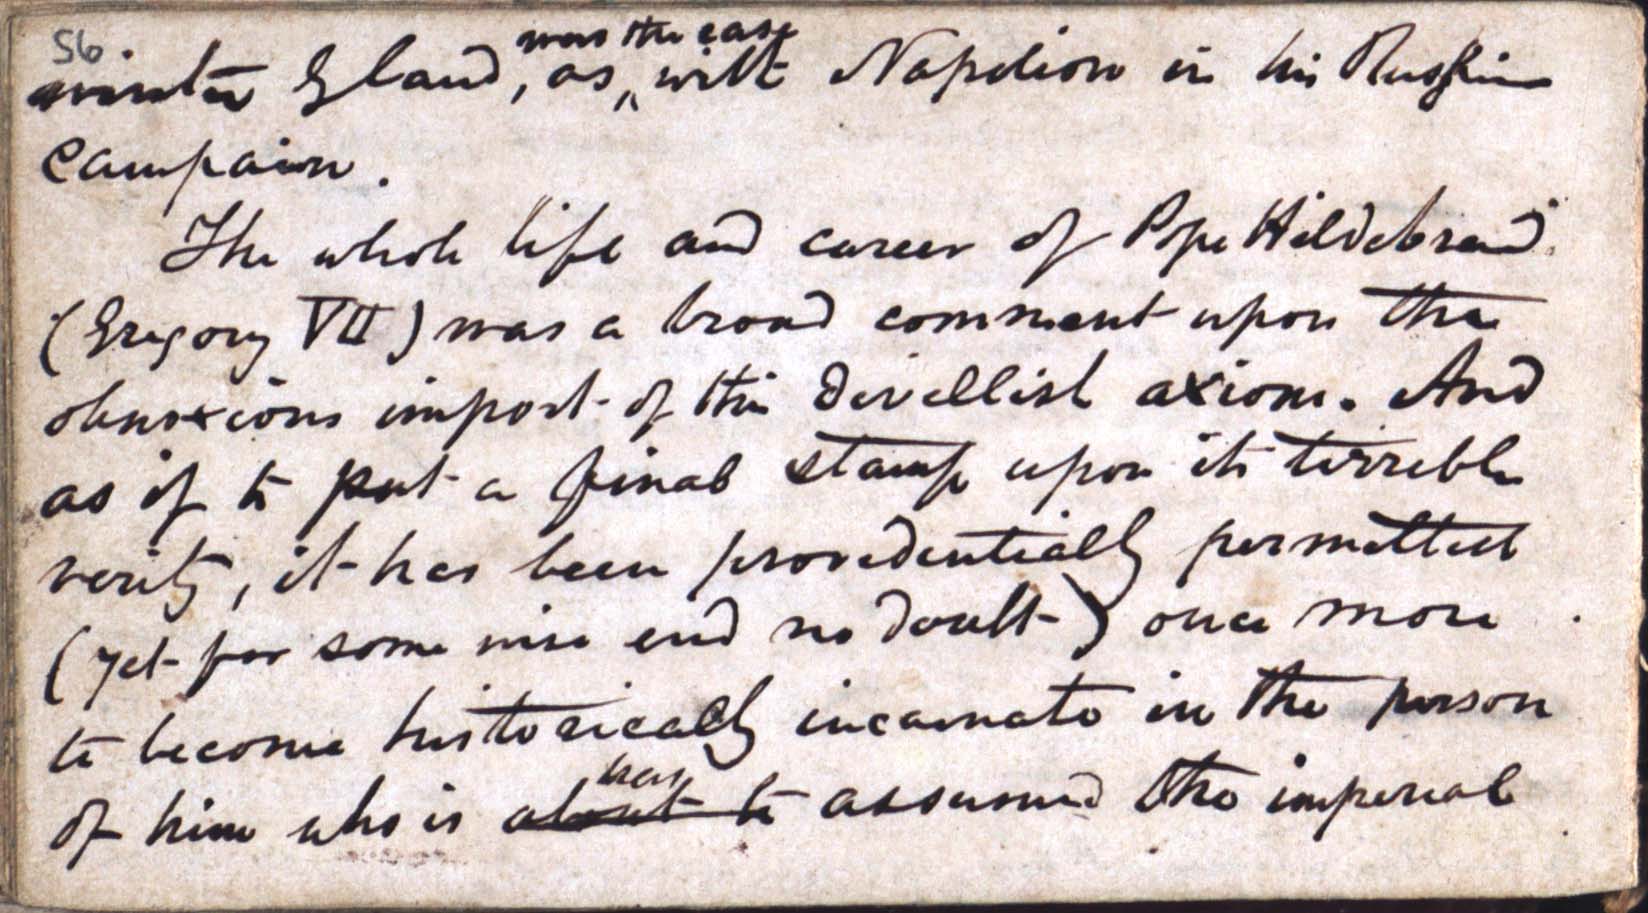 56
was the case
winter Gland, as ‸ with Napoleon in his Russian
Campaign.
The whole life and career of Pope Hildebrand
(Gregory VII) was a broad comment upon the
obnoxious import of this devellish axiom. And
as if to put a final stamp upon its terrible
verity, it has been providentially permitted
(yet for some wise end no doubt) once more
to become historically incarnate in the person
has
of him who is about to assumed the imperial